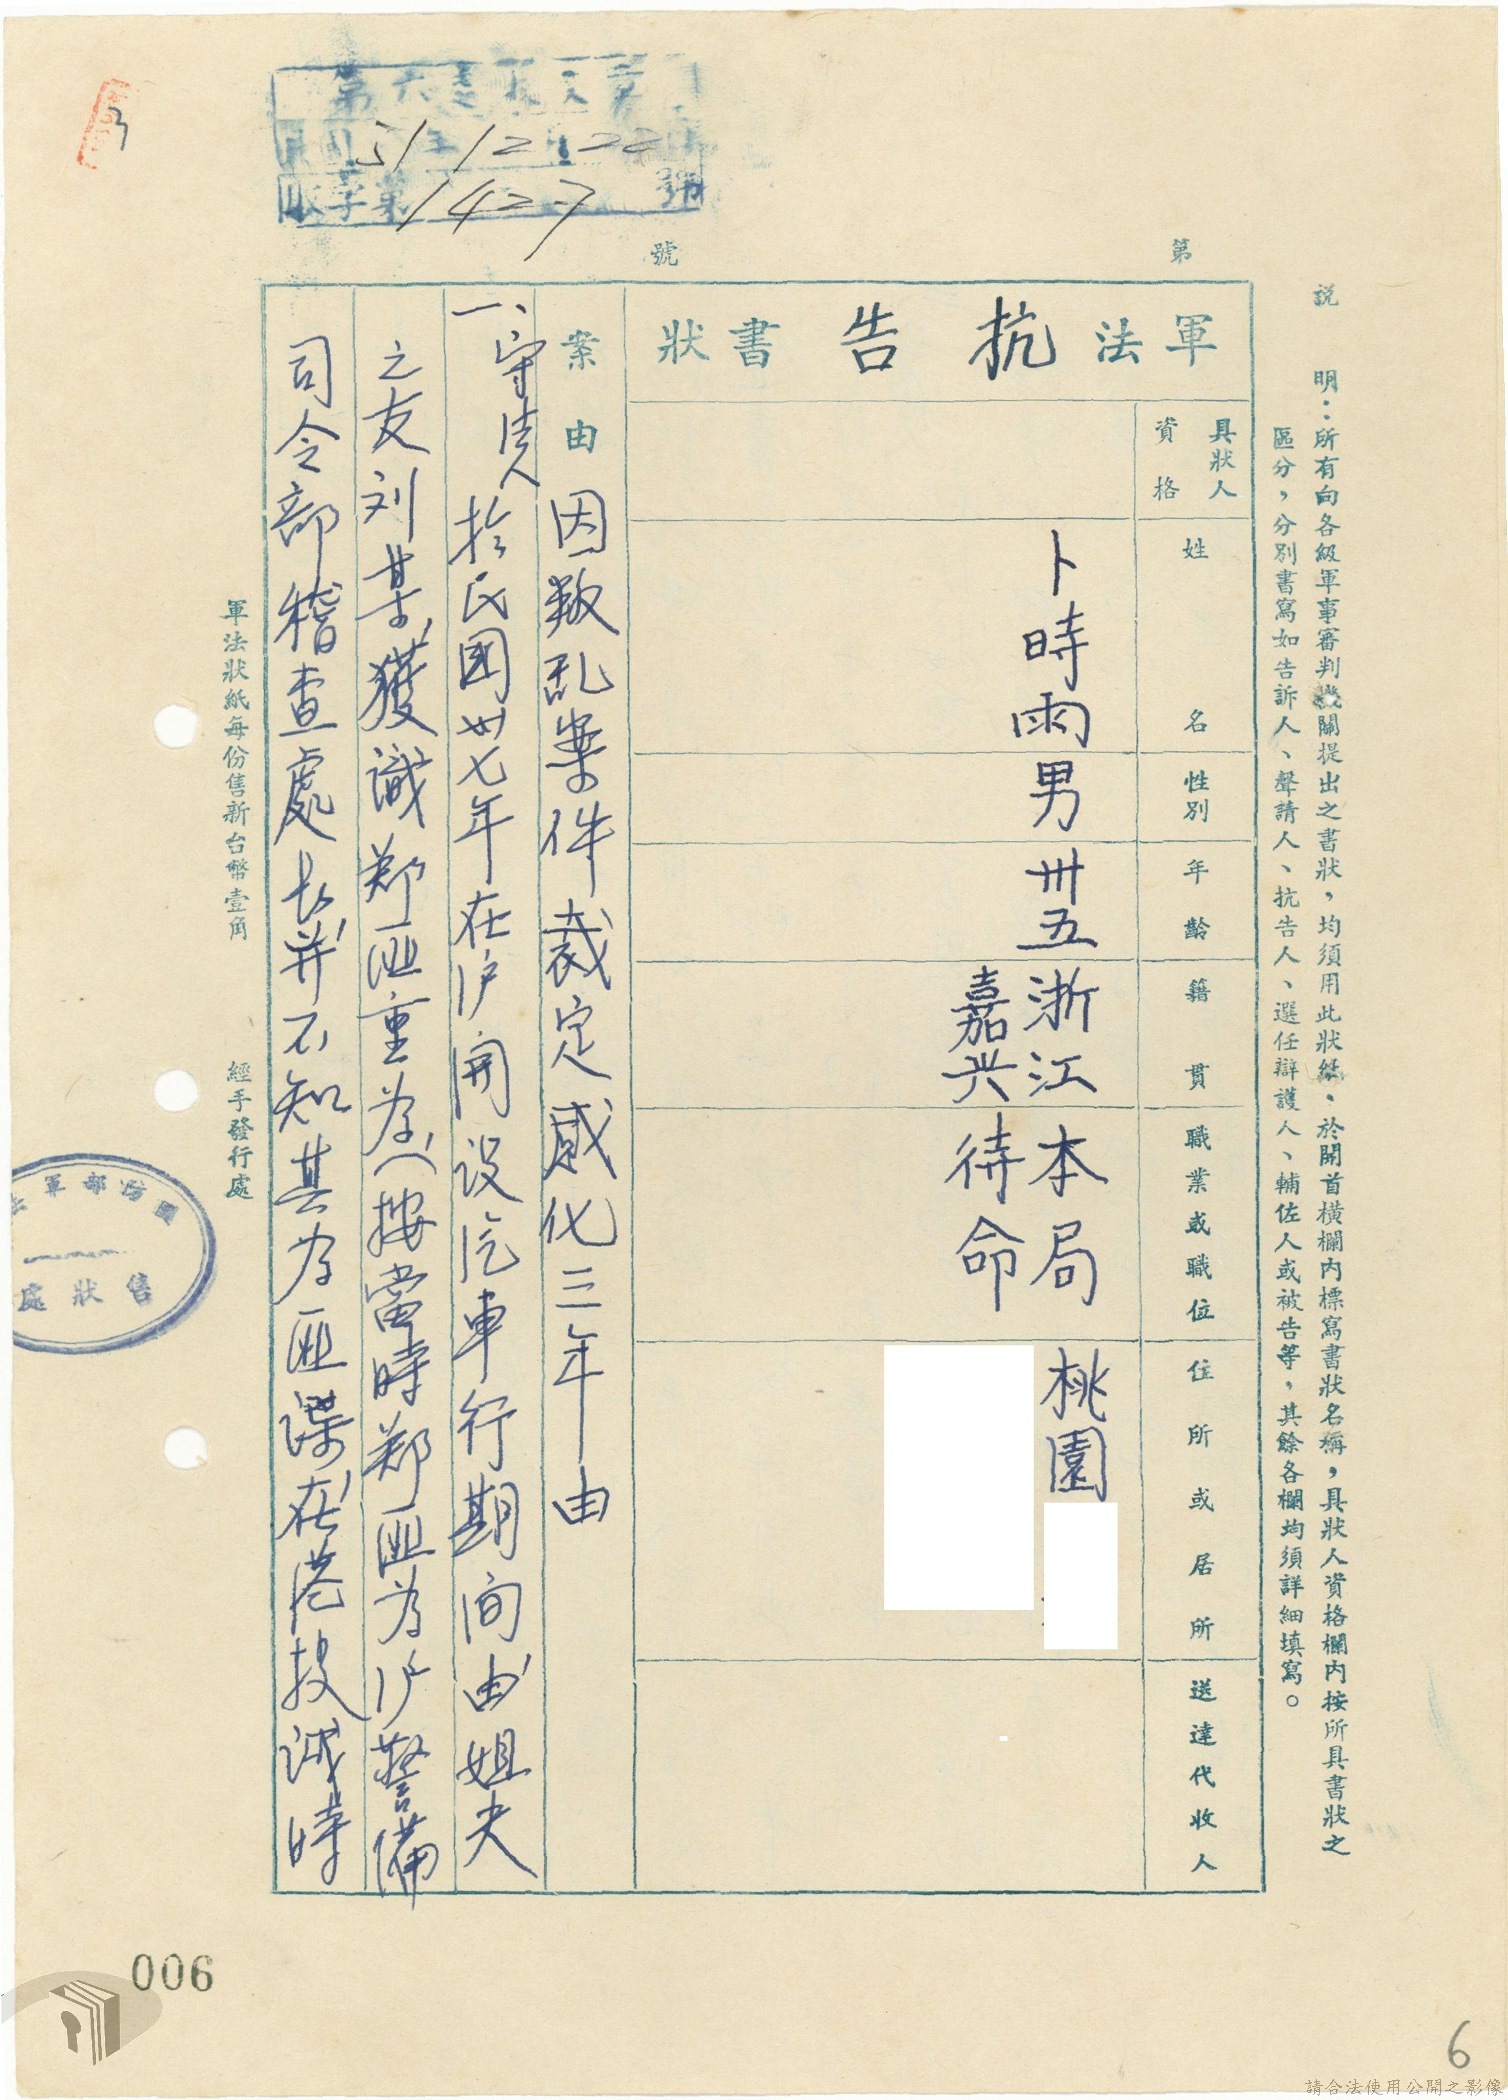 說　明：所有向各級軍事審判機關提出之書狀，均須用此狀紙。於開首橫欄內標寫書狀名稱，具狀人資格欄內按所具書狀之
區分，分別書寫如告訴人、聲請人、抗告人、選任辯護人、輔佐人或被告等，其餘各欄均須詳細填寫。
第　號
軍法抗告書狀
具狀人資格
姓名
性別
年齡
籍貫
職業或職位
住所或居所
送達代收人
卜時雨
男
卅五
浙江
嘉兴
本局
待命
桃園
案由
因叛乱案件裁定感化三年由
一、
於民國卅七年在沪開设汽車行期间由姐夫
之友刘某獲識郑匪重为(按當時郑匪为沪警備
司令部稽查處长并不知其为匪諜在港投诚時
軍法狀紙每份售新台幣壹角
經手發行處
國防部軍法
售狀處
51 12 22
字第1427號
3
006
6
請合法使用公開之影像